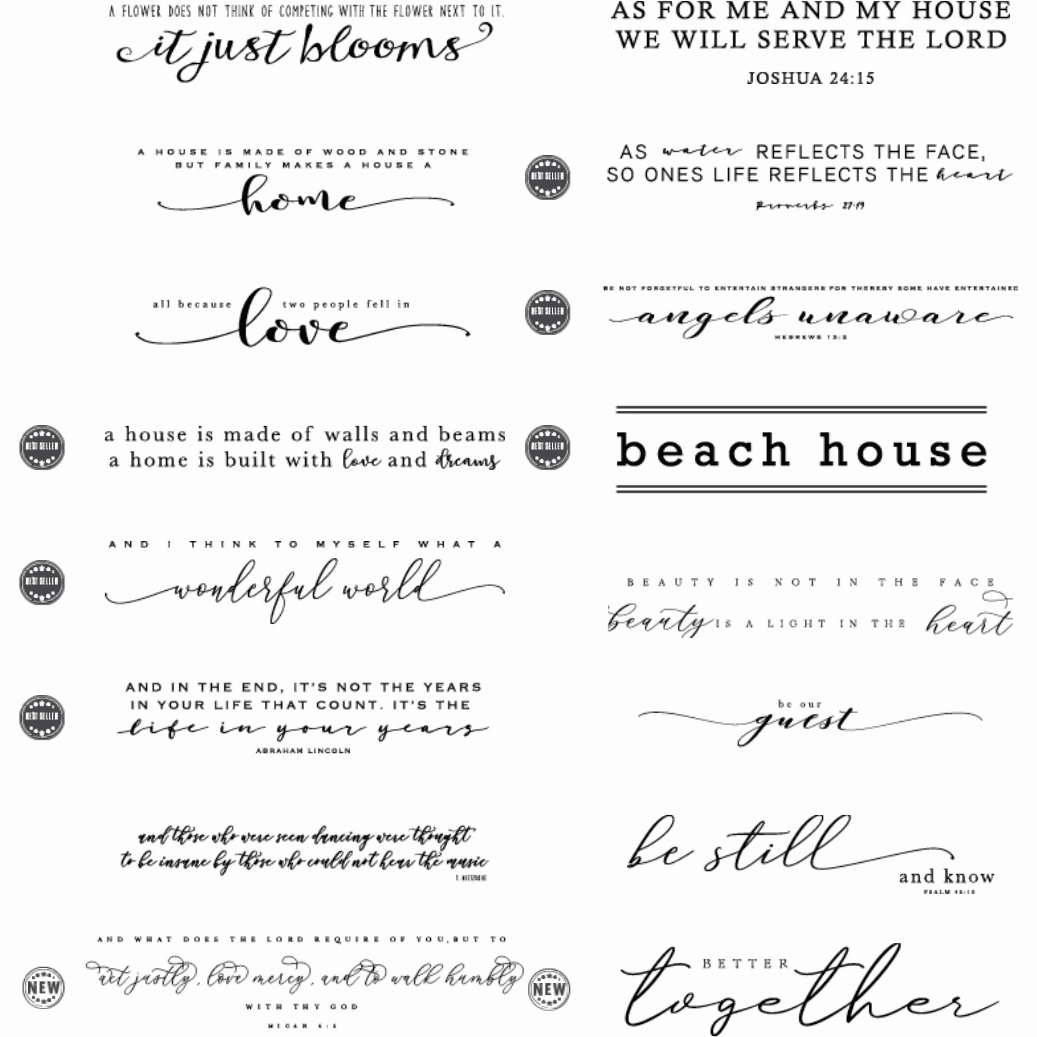 A FLOWER DOES NOT THINK OF COMPETING WITH THE FLOWER NEXT TO IT.
it just blooms
A HOUSE IS MADE OF WOOD AND STONE
BUT FAMILY MAKES A HOUSE A
home
all because love two people fell in
BEST SELLER
a house is made of walls and beams
a home is built with love and dreams
BEST SELLER
AND I THINK TO MYSELF WHAT A
wonderful world
BEST SELLER
AND IN THE END, IT'S NOT THE YEARS
IN YOUR LIFE THAT COUNT. IT'S THE
life in your years
ABRAHAM LINCOLN
and those who were seen dancing were thought
to be insane by those who could not hear the music
F. NIETZSCHE
NEW
AND WHAT DOES THE LORD REQUIRE OF YOU, BUT TO
act justly, love mercy, and to walk humbly
WITH THY GOD
MICAH 6:8
AS FOR ME AND MY HOUSE
WE WILL SERVE THE LORD
JOSHUA 24:15
BEST SELLER
AS water REFLECTS THE FACE,
SO ONES LIFE REFLECTS THE heart
Proverbs 27:19
BEST SELLER
BE NOT FORGETFUL TO ENTERTAIN STRANGERS FOR THEREBY SOME HAVE ENTERTAINED
angels unaware
HEBREWS 13:2
BEST SELLER
beach house
BEAUTY IS NOT IN THE FACE
beauty IS A LIGHT IN THE heart
be our
guest
be still
and know
PSALM 46:10
NEW
BETTER
together